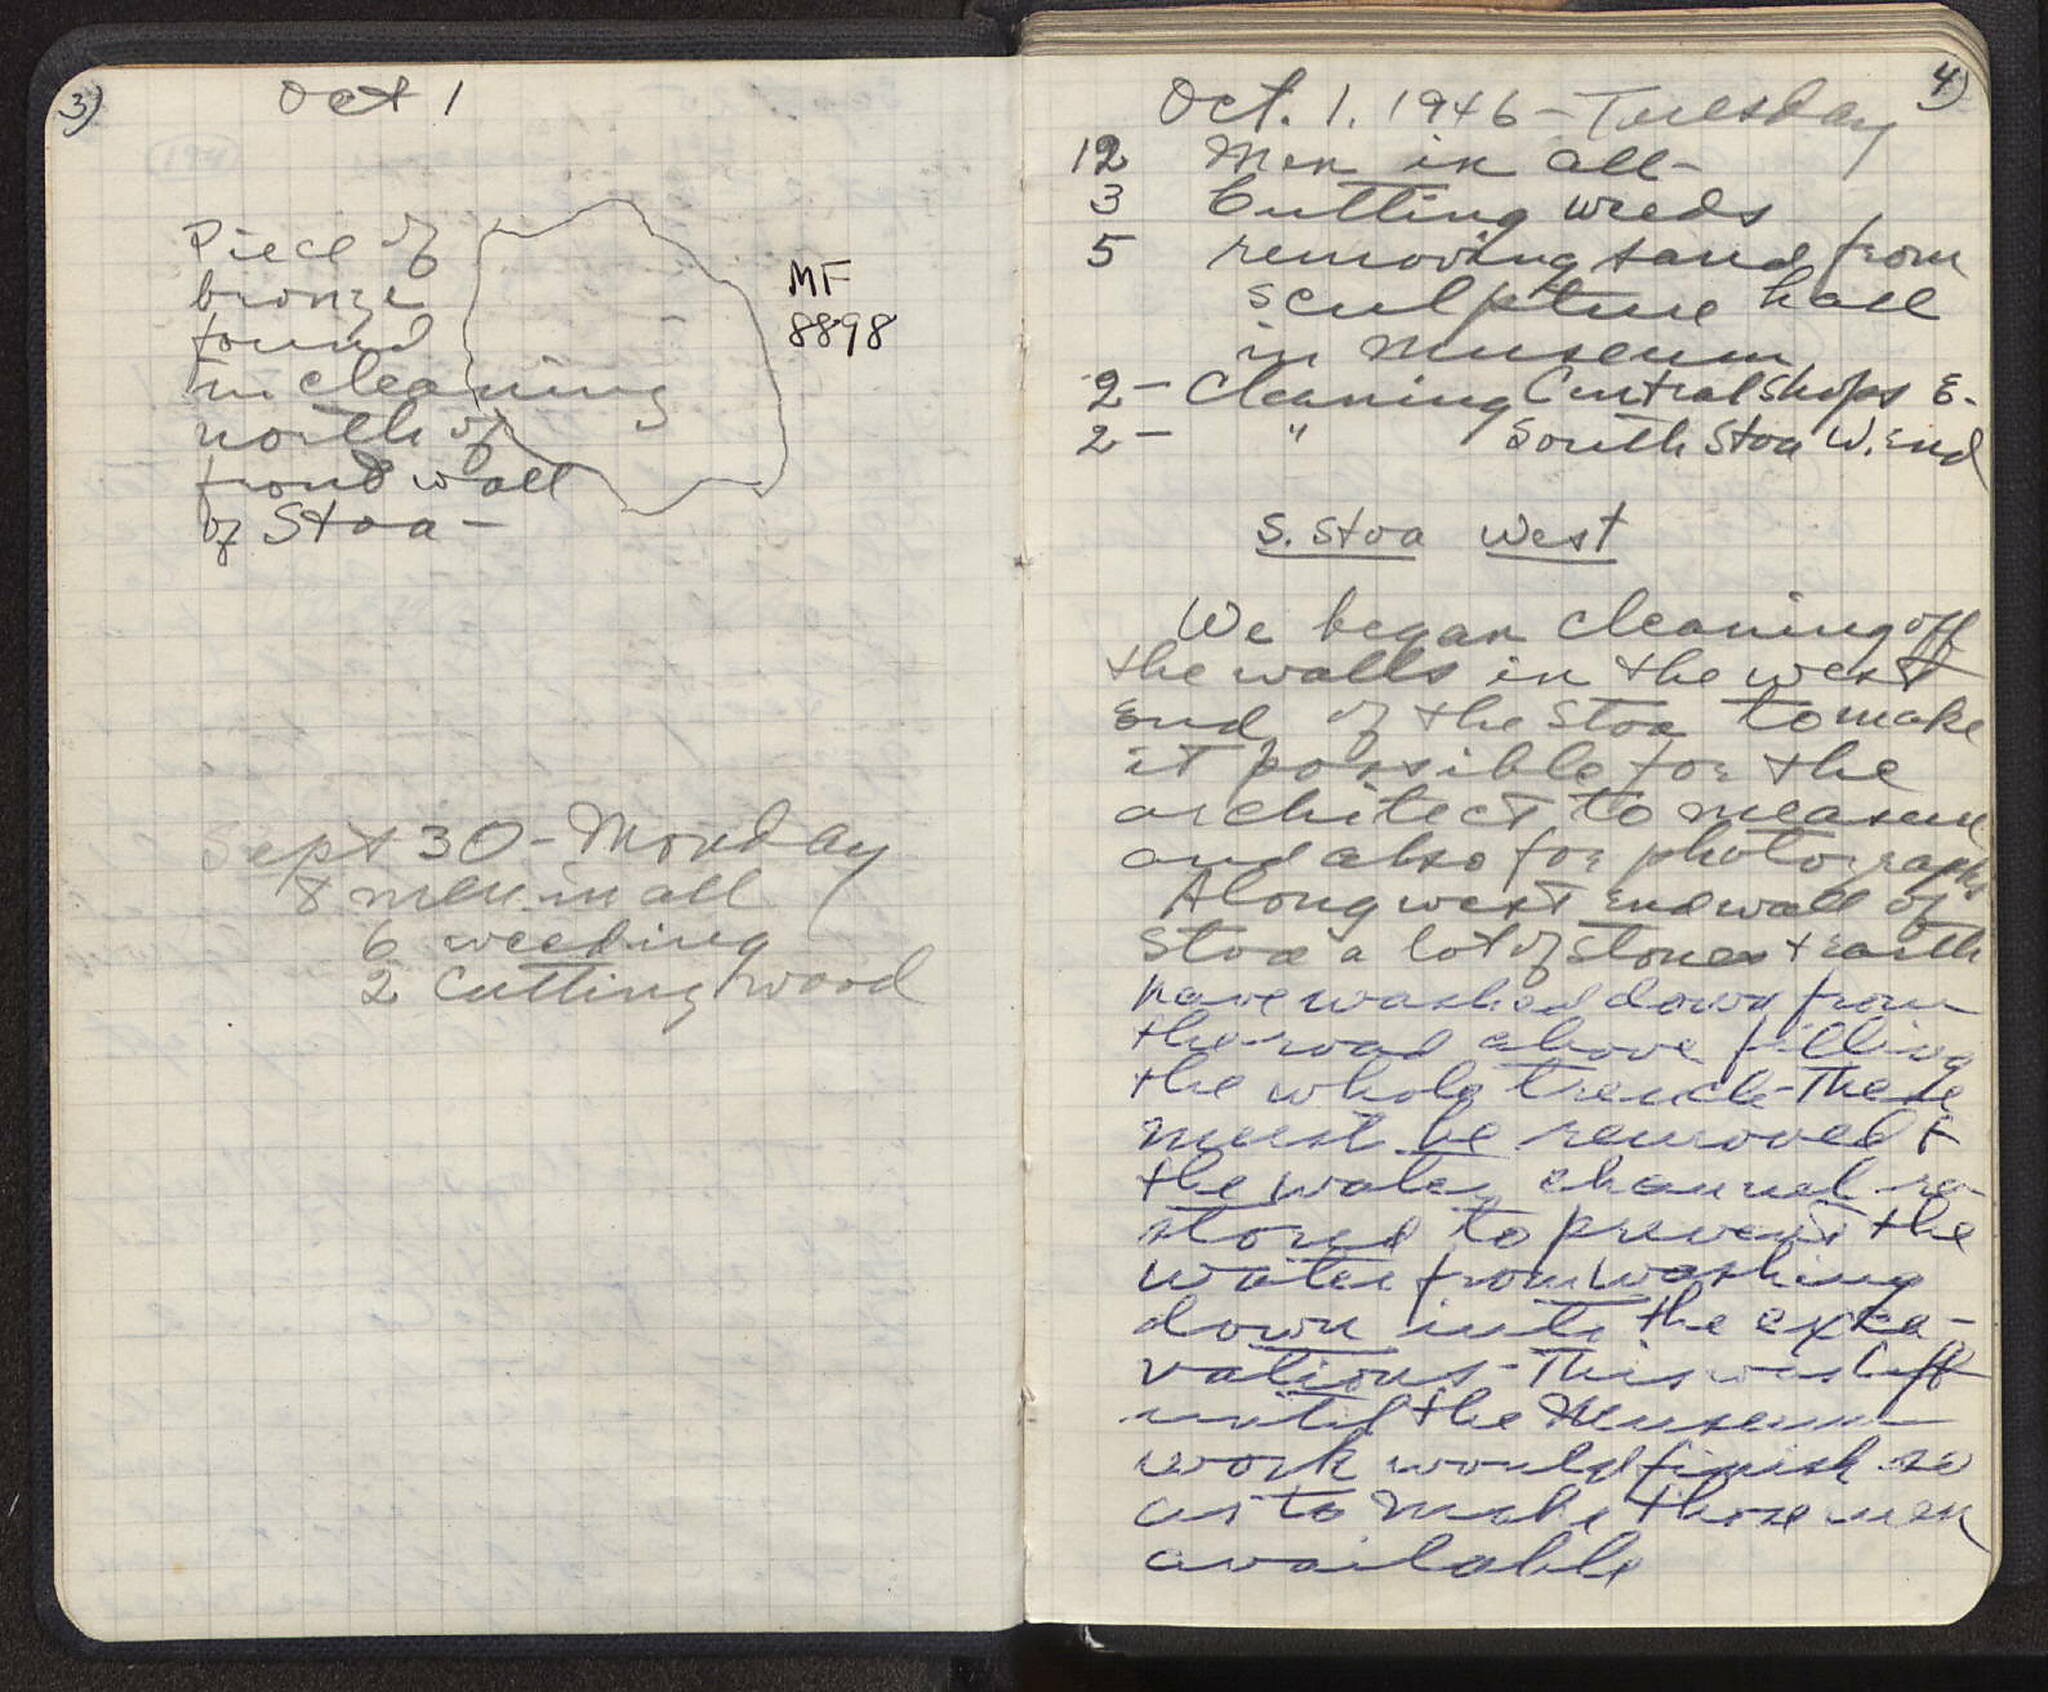 3)
Oct 1
Piece of
bronze
found
in cleaning
north of
front wall
of Stoa -
MF
8898
Sept 30 - Monday
8 men in all
6 weeding
2 cutting wood
4)
Oct. 1. 1946 - Tuesday
12 Men in all -
3 Cutting weeds
5 removing sand from
sculpture hall
in Museum
2 - Cleaning Central Shops E.
2 - " South Stoa W. End
S. Stoa West
We began cleaning off
the walls in the west
End of the Stoa to make
it possible for the
architect to measure
and also for photographs
Along west end wall of
Stoa a lot of stones + earth
have washed down from
the road above filling
the whole trench - These
must be removed +
the water channel re-
stored to prevent the
water from washing
down into the exca-
vations - This was left
until the Museum
work would finish so
as to make those men
available